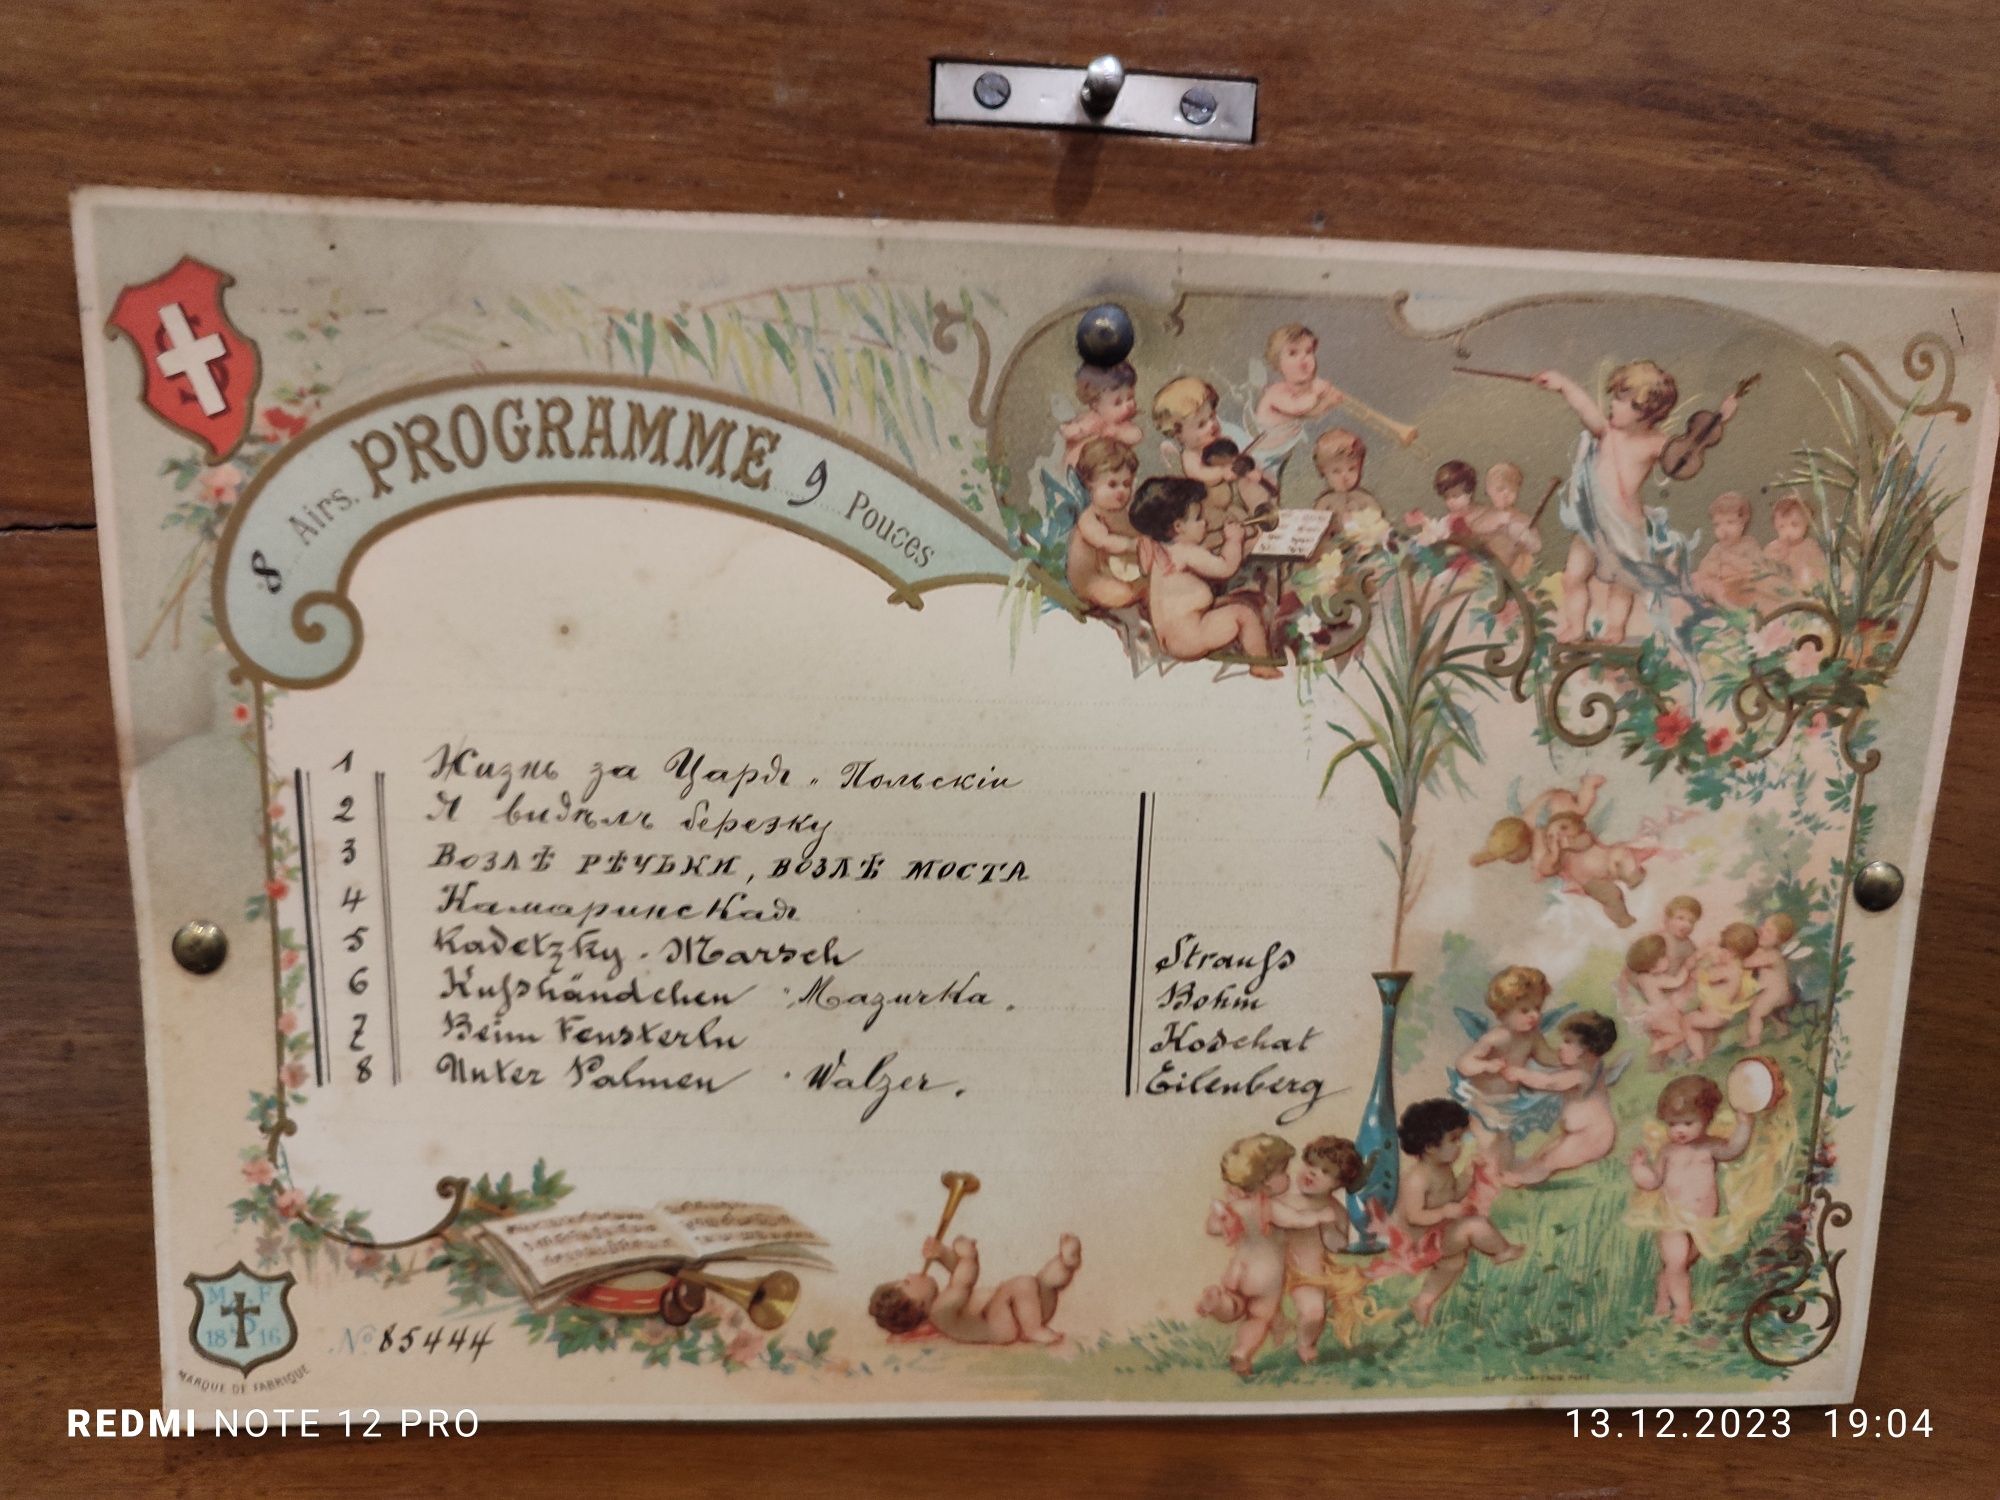 8 Airs. PROGRAMME 9 Pouces
1 Жизнь за Царя „ Польскiи
2 Я видѣлъ березку
3 ВОЗЛѢ РѢЧЬКИ, ВОЗЛѢ МОСТА
4 Камаринская
5 Radetzky - Marsch Strauſs
6 Kuſshändchen " Mazurka. Bohm
7 Beim Fensterln Koschat
8 Unter Palmen " Walzer. Eilenberg
M F
18 16
MARQUE DE FABRIQUE
No 85444
REDMI NOTE 12 PRO
13.12.2023 19:04